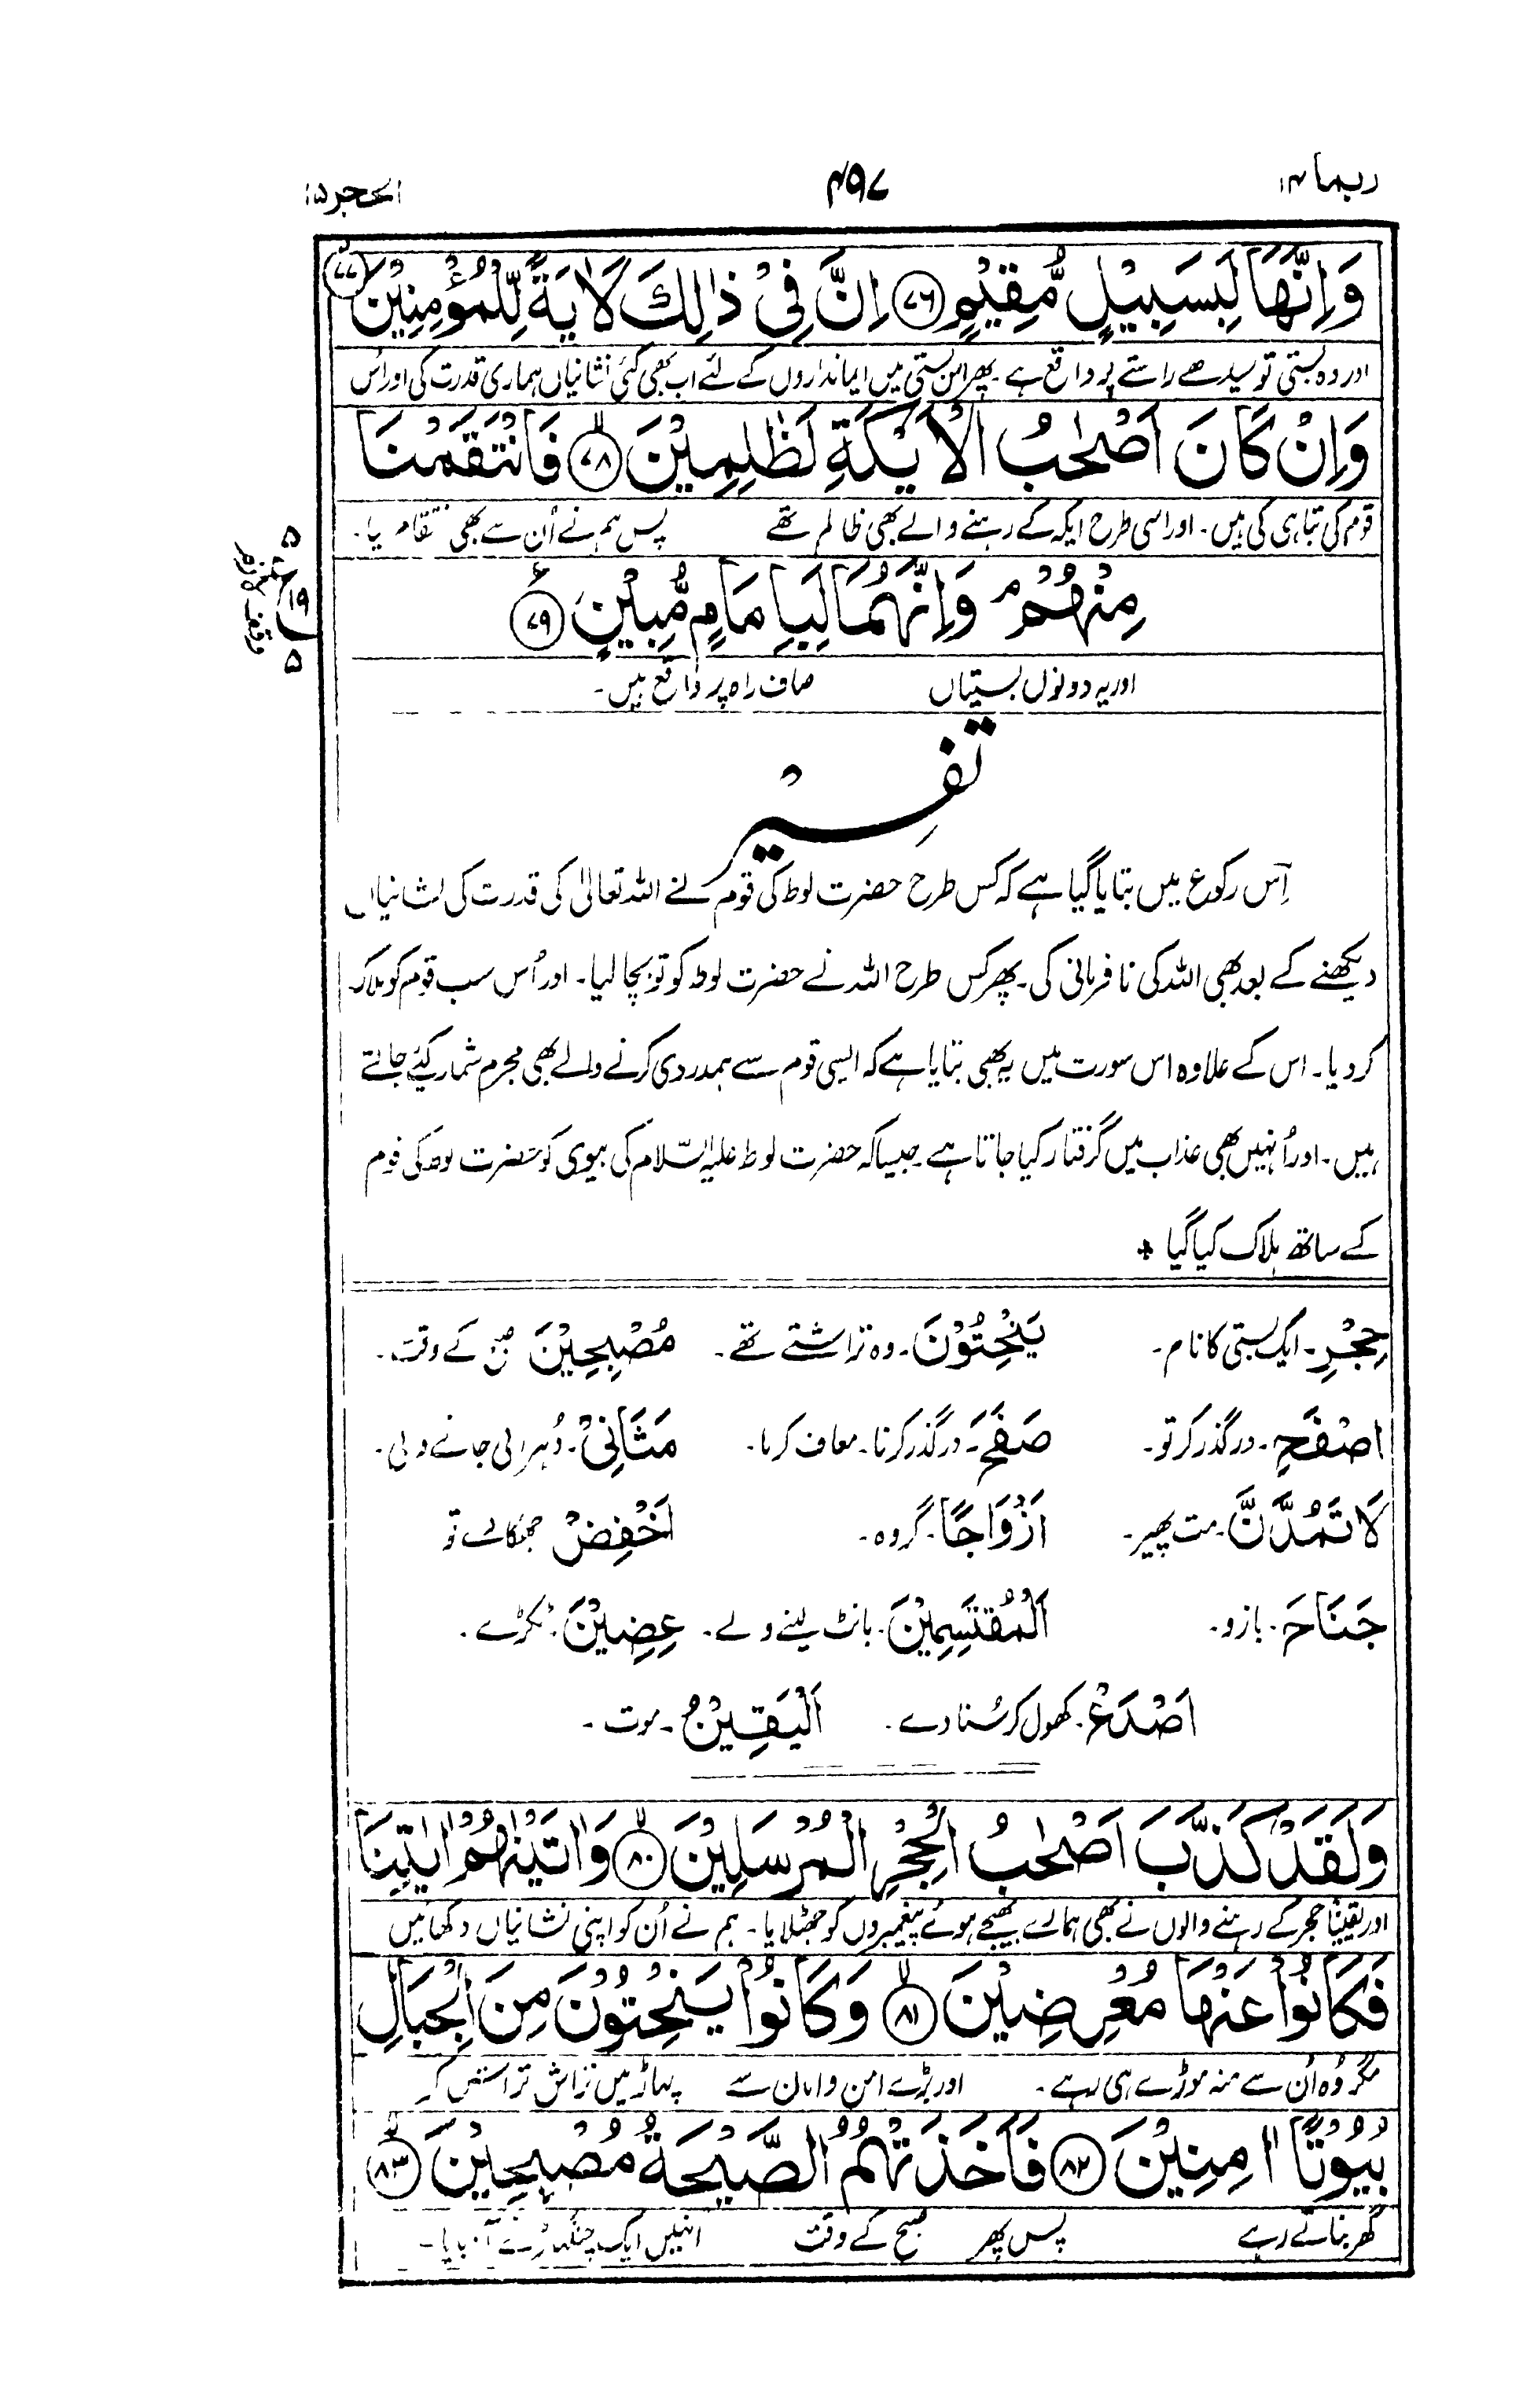 ربما ۱۴
۴۹۷
الحجر ۱۵
وَاِنَّهَا لَبِسَبِيْلٍ مُّقِيْمٍ ﴿۷۶﴾ اِنَّ فِيْ ذٰلِكَ لَاٰيَةً لِّلْمُؤْمِنِيْنَ ﴿۷۷﴾
اور وہ بستی تو سیدھے راستے پر واقع ہے۔ پھر اس بستی میں ایمانداروں کے لئے اب بھی کئی نشانیاں ہماری قدرت کی اور اُس
وَاِنْ كَانَ اَصْحٰبُ الْاَيْكَةِ لَظٰلِمِيْنَ ﴿۷۸﴾ فَانْتَقَمْنَا
قوم کی تباہی کی ہیں۔ اور اسی طرح ایکہ کے رہنے والے بھی ظالم تھے پس ہم نے اُن سے بھی انتقام لیا۔
مِنْهُمْ ۘ وَاِنَّهُمَا لَبِاِمَامٍ مُّبِيْنٍ ﴿۷۹﴾
اور یہ دونوں بستیاں صاف راہ پر واقع ہیں۔
۵
ع
۱۹
۵
وقف لازم
تفسیر
اِس رکوع میں بتایا گیا ہے کہ کس طرح حضرت لوط کی قوم نے اللہ تعالیٰ کی قدرت کی نشانیاں
دیکھنے کے بعد بھی اللہ کی نافرمانی کی۔ پھر کس طرح اللہ نے حضرت لوط کو تو بچا لیا۔ اور اُس سب قوم کو ہلاک
کر دیا۔ اس کے علاوہ اس سورت میں یہ بھی بتایا ہے کہ ایسی قوم سے ہمدردی کرنے والے بھی مجرم شمار کیئے جاتے
ہیں۔ اور اُنہیں بھی عذاب میں گرفتار کیا جاتا ہے۔ جیسا کہ حضرت لوط علیہ السّلام کی بیوی کو حضرت لوط کی قوم
کے ساتھ ہلاک کیا گیا ٭
حِجْرِ۔ ایک بستی کا نام۔ يَنْحِتُوْنَ۔ وہ تراشتے تھے۔ مُصْبِحِيْنَ صبح کے وقت۔
اصْفَحِ۔ درگذر کر تو۔ صَفْحَ۔ درگذر کرنا۔ معاف کرنا۔ مَثَانِيْ۔ دُہرائی جانے والی۔
لَا تَمُدَّنَّ۔ مت پھیر۔ اَزْوَاجًا۔ گروہ۔ اخْفِضْ جھکالے تو
جَنَاحَ۔ بازو۔ اَلْمُقْتَسِمِيْنَ۔ بانٹ لینے والے۔ عِضِيْنَ۔ ٹکڑے۔
اصْدَعْ۔ کھول کر سُنا دے۔ اَلْيَقِيْنُ۔ موت۔
وَلَقَدْ كَذَّبَ اَصْحٰبُ الْحِجْرِ الْمُرْسَلِيْنَ ﴿۸۰﴾ وَاٰتَيْنٰهُمْ اٰيٰتِنَا
اور یقینًا حجر کے رہنے والوں نے بھی ہمارے بھیجے ہوئے پیغمبروں کو جھٹلایا۔ ہم نے اُن کو اپنی نشانیاں دکھائیں
فَكَانُوْا عَنْهَا مُعْرِضِيْنَ ﴿۸۱﴾ وَكَانُوْا يَنْحِتُوْنَ مِنَ الْجِبَالِ
مگر وُہ اُن سے منہ موڑے ہی رہے۔ اور بڑے امن و امان سے پہاڑ میں تراش تراش کر
بُيُوْتًا اٰمِنِيْنَ ﴿۸۲﴾ فَاَخَذَتْهُمُ الصَّيْحَةُ مُصْبِحِيْنَ ﴿۸۳﴾
گھر بناتے رہے پس پھر صبح کے وقت انہیں ایک چنگھاڑ نے آن دبایا۔